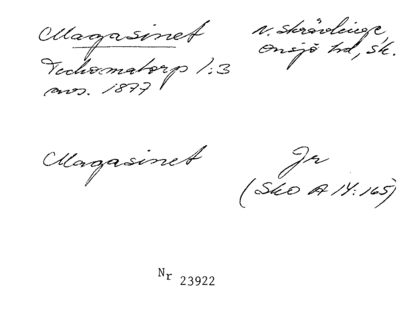 Magasinet
N. Skrävlinge
Onsjö hd, Sk.
Tuchematorp 1:3
avs. 1877
Magasinet
Jr
(Sko A 14:165)
Nr 23922